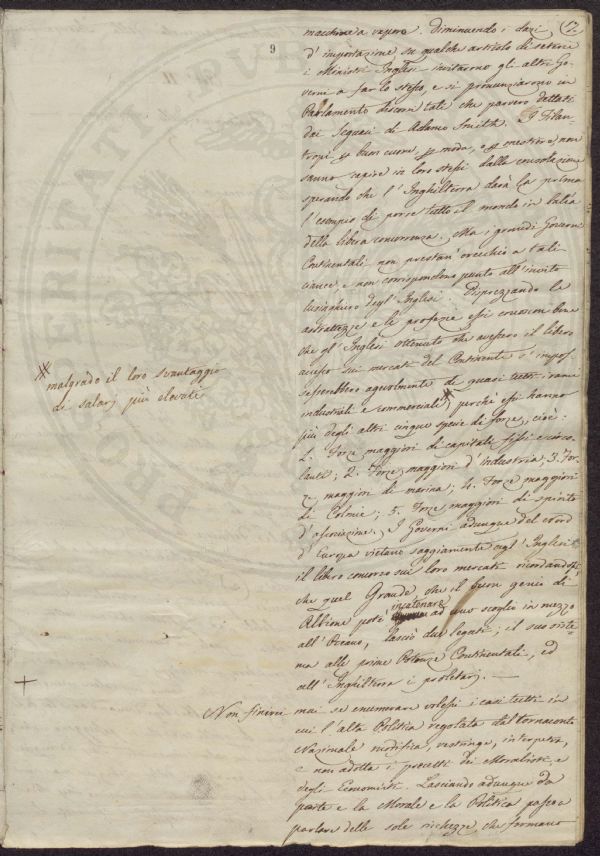 12
9
macchine a vapore. Diminuendo i dazi
d'importazione su qualche articolo di seterie
i Ministri Inglesi invitarono gli altri Go-
verni a far lo stesso, e si pronunziarono in
Parlamento discorsi tali che parvero dettati
dai seguaci di Adamo Smith. I Filan-
tropi, per buon cuore, per moda, o per mestiero, non
sanno capire in loro stessi dalla consolazione
sperando che l'Inghilterra darà la prima
l'esempio di porre tutto il mondo in balìa
della libera concorrenza. Ma i grandi Governi
Continentali non prestan orecchio a tali
ciance, e non corrispondono punto all'invito
lusinghiero degl'Inglesi. Disprezzando la
astrattezze e le profezie essi credono bene
che gl'Inglesi ottenuto che avessero il libero
accesso sui mercati del Continente s'impos-
sesserebbero agevolmente di quasi tutti i rami
industriali e commerciali, perchè essi hanno
※ malgrado il loro svantaggio
di salarj più elevati
più degli altri cinque specie di forze, cioè:
1. Forze maggiori di capitali fissi e circo-
lanti; 2. Forze maggiori d'industria; 3. For-
ze maggiori di marina; 4. Forze maggiori
di Colonie; 5. Forze maggiori di spirito
d'associazione. I Governi adunque del nord
d'Europa vietano saggiamente agl'Inglesi
il libero concorso sui loro mercati ricordandosi
che quel Grande, che il buon genio di
Albione potè incatenare ad uno scoglio in mezzo
all'Oceano, lasciò due legati; il suo siste-
ma alle prime Potenze Continentali, ed
all'Inghilterra i proletarj. —
+
Non finirei mai se enumerare volessi i casi tutti in
cui l'alta Politica regolata dal tornaconto
Nazionale modifica, restringe, interpreta,
e non adotta i precetti dei Moralisti, e
degli Economisti. Lasciando adunque da
parte e la Morale e la Politica passerò
parlare delle sole ricchezze che formano